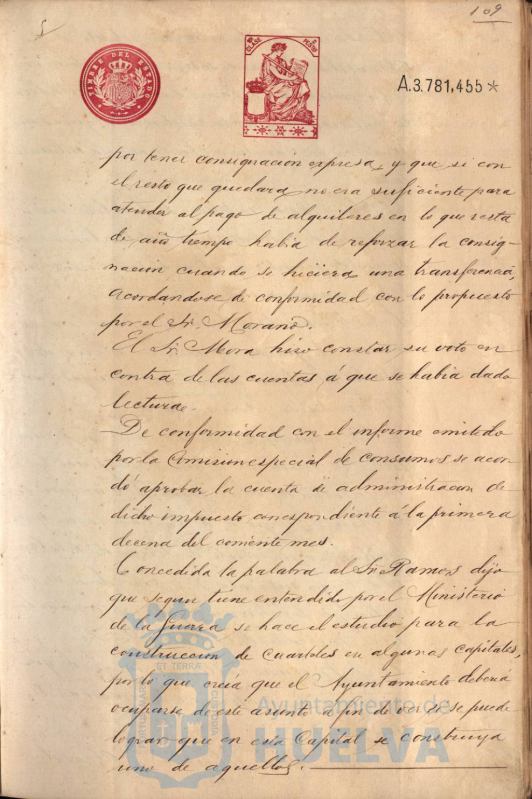 109
TIMBRE DEL ESTADO
A.3.781,455*
por tener consignación expresa, y que si con
el resto que quedara no era suficiente para
atender al pago de alquileres en lo que resta
de año tiempo habia de reforzar la consig-
nación cuando se hiciera una transferencia,
acordandose de conformidad con lo propuesto
por el Sr. Morano.
El Sr. Mora hizo constar su voto en
contra de las cuentas á que se habia dado
lectura.
De conformidad con el informe emitido
por la Comision especial de consumos se acor-
dó aprobar la cuenta de administracion de
dicho impuesto correspondiente á la primera
decena del corriente mes.
Concedida la palabra al Sr. Ramos dijo
que segun tiene entendido por el Ministerio
de la Guerra se hace el estudio para la
construccion de Cuarteles en algunas capitales,
por lo que creia que el Ayuntamiento deberá
ocuparse de este asunto á fin de ver si se puede
lograr que en esta Capital se construya
uno de aquellos.
Ayuntamiento de
HUELVA